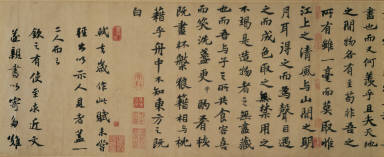 盡也而又何羨乎且夫天地
之間物各有主苟非吾之
所有雖一毫而莫取惟
江上之清風與山間之明
月耳得之而為聲目遇
之而成色取之無禁用之
不竭是造物者之無盡藏
也而吾與子之所共食客喜
而笑洗盞更酌肴核
既盡杯盤狼籍相與枕
藉乎舟中不知東方之既
白
軾去歲作此賦未嘗
輕出以示人見者蓋一
二人而已
欽之有使至求近文
遂親書以寄多難